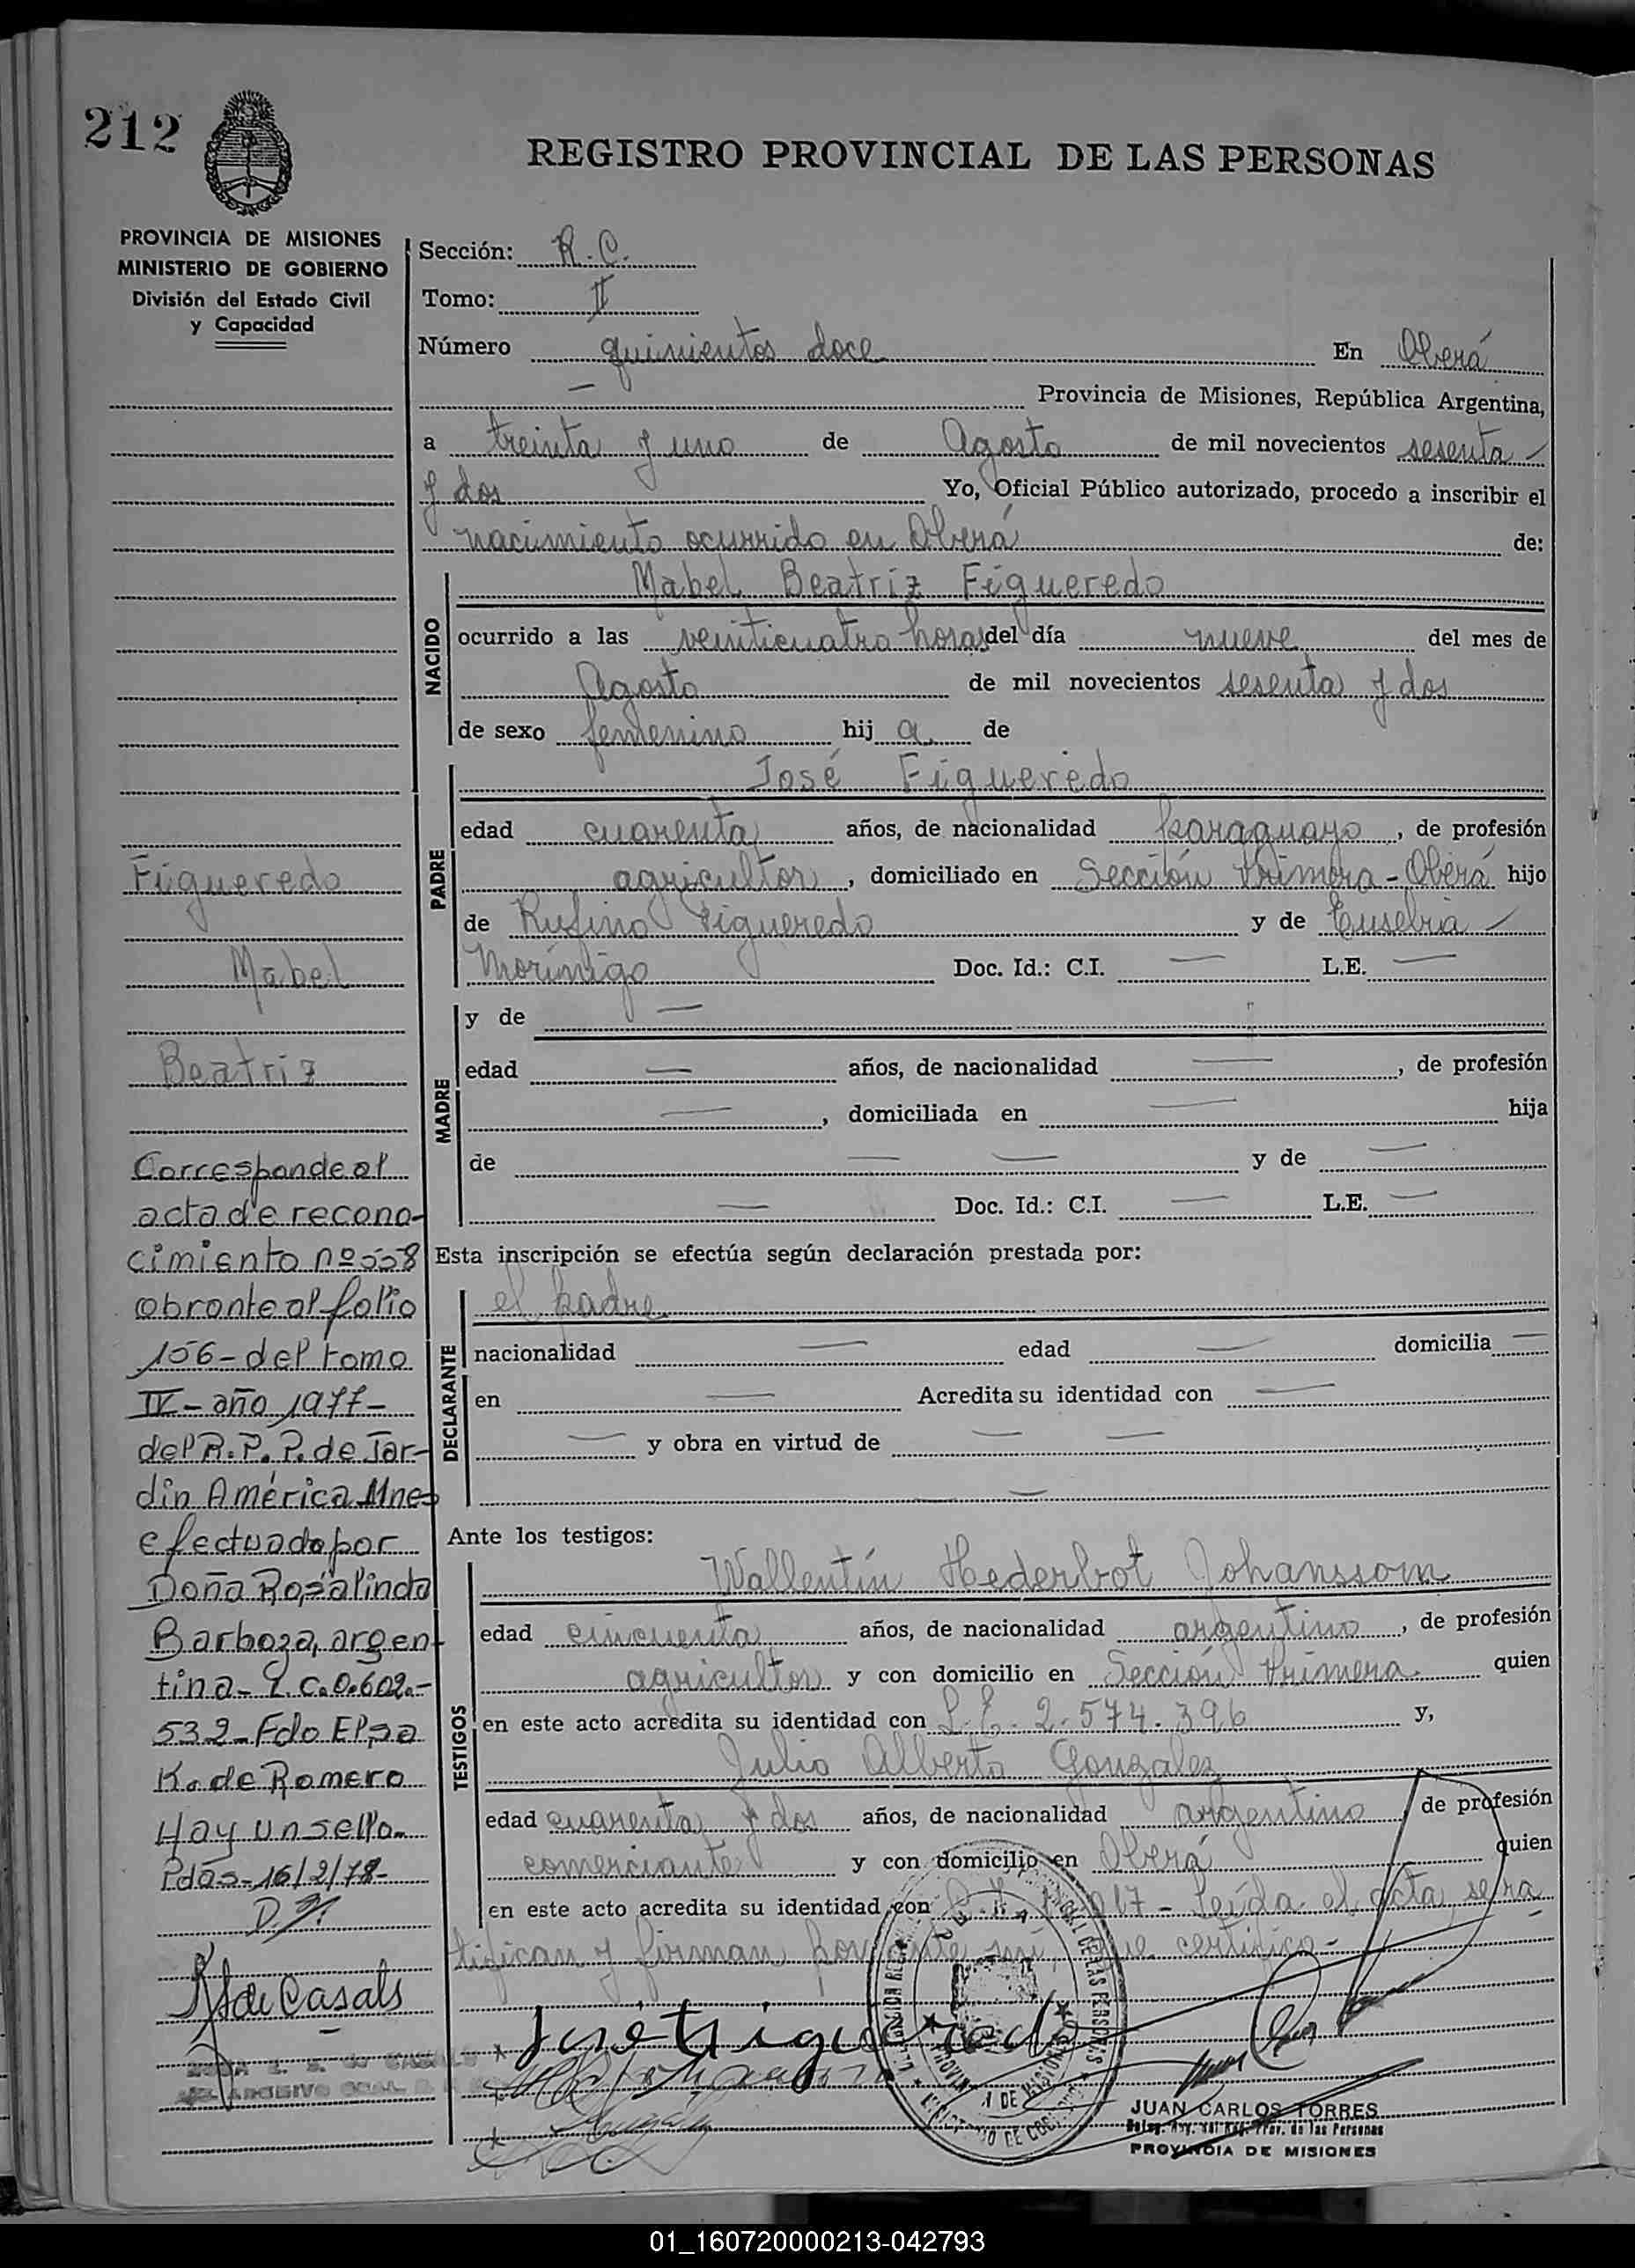 212
REGISTRO PROVINCIAL DE LAS PERSONAS
PROVINCIA DE MISIONES
MINISTERIO DE GOBIERNO
División del Estado Civil
y Capacidad
Figueredo
Mabel
Beatriz
Corresponde al
acta de recono-
cimiento nº 558
obrante al folio
156 - del tomo
IV - año 1977 -
del R. P. P. de Jar-
din América Mnes
efectuado por
Doña Rosalinda
Barboza, argen-
tina - L. C. 0.602.-
532 - Fdo Elsa
K. de Romero
Hay un sello.
Pdas - 16/2/78 -
de Casals
Sección: R. C.
Tomo: II
Número quinientos doce En Oberá
— Provincia de Misiones, República Argentina,
a treinta y uno de Agosto de mil novecientos sesenta —
y dos Yo, Oficial Público autorizado, procedo a inscribir el
nacimiento ocurrido en Oberá de:
NACIDO
Mabel Beatriz Figueredo
ocurrido a las veinticuatro horas del día nueve del mes de
Agosto de mil novecientos sesenta y dos
de sexo femenino hij a. de
PADRE
José Figueredo
edad cuarenta años, de nacionalidad paraguayo, de profesión
agricultor, domiciliado en Sección Primera - Oberá hijo
de Rufino Figueredo y de Eusebia —
Morínigo Doc. Id.: C.I. — L.E. —
MADRE
y de —
edad — años, de nacionalidad —, de profesión
—, domiciliada en — hija
de — — y de —
— Doc. Id.: C.I. — L.E. —
Esta inscripción se efectúa según declaración prestada por:
DECLARANTE
el padre
nacionalidad — edad — domicilia —
en — Acredita su identidad con —
— y obra en virtud de — —
— —
Ante los testigos:
TESTIGOS
Wallentín Hederbot Johanssom
edad cincuenta años, de nacionalidad argentino, de profesión
agricultor y con domicilio en Sección Primera quien
en este acto acredita su identidad con L. E. 2.574.396 y,
Julio Alberto Gonzalez
edad cuarenta y dos años, de nacionalidad argentino, de profesión
comerciante y con domicilio en Oberá quien
en este acto acredita su identidad con 017 - Leída el acta, se ra
tifican y firman por ante mí que certifico -
José Figueredo
JUAN CARLOS TORRES
PROVINCIA DE MISIONES
01_160720000213-042793